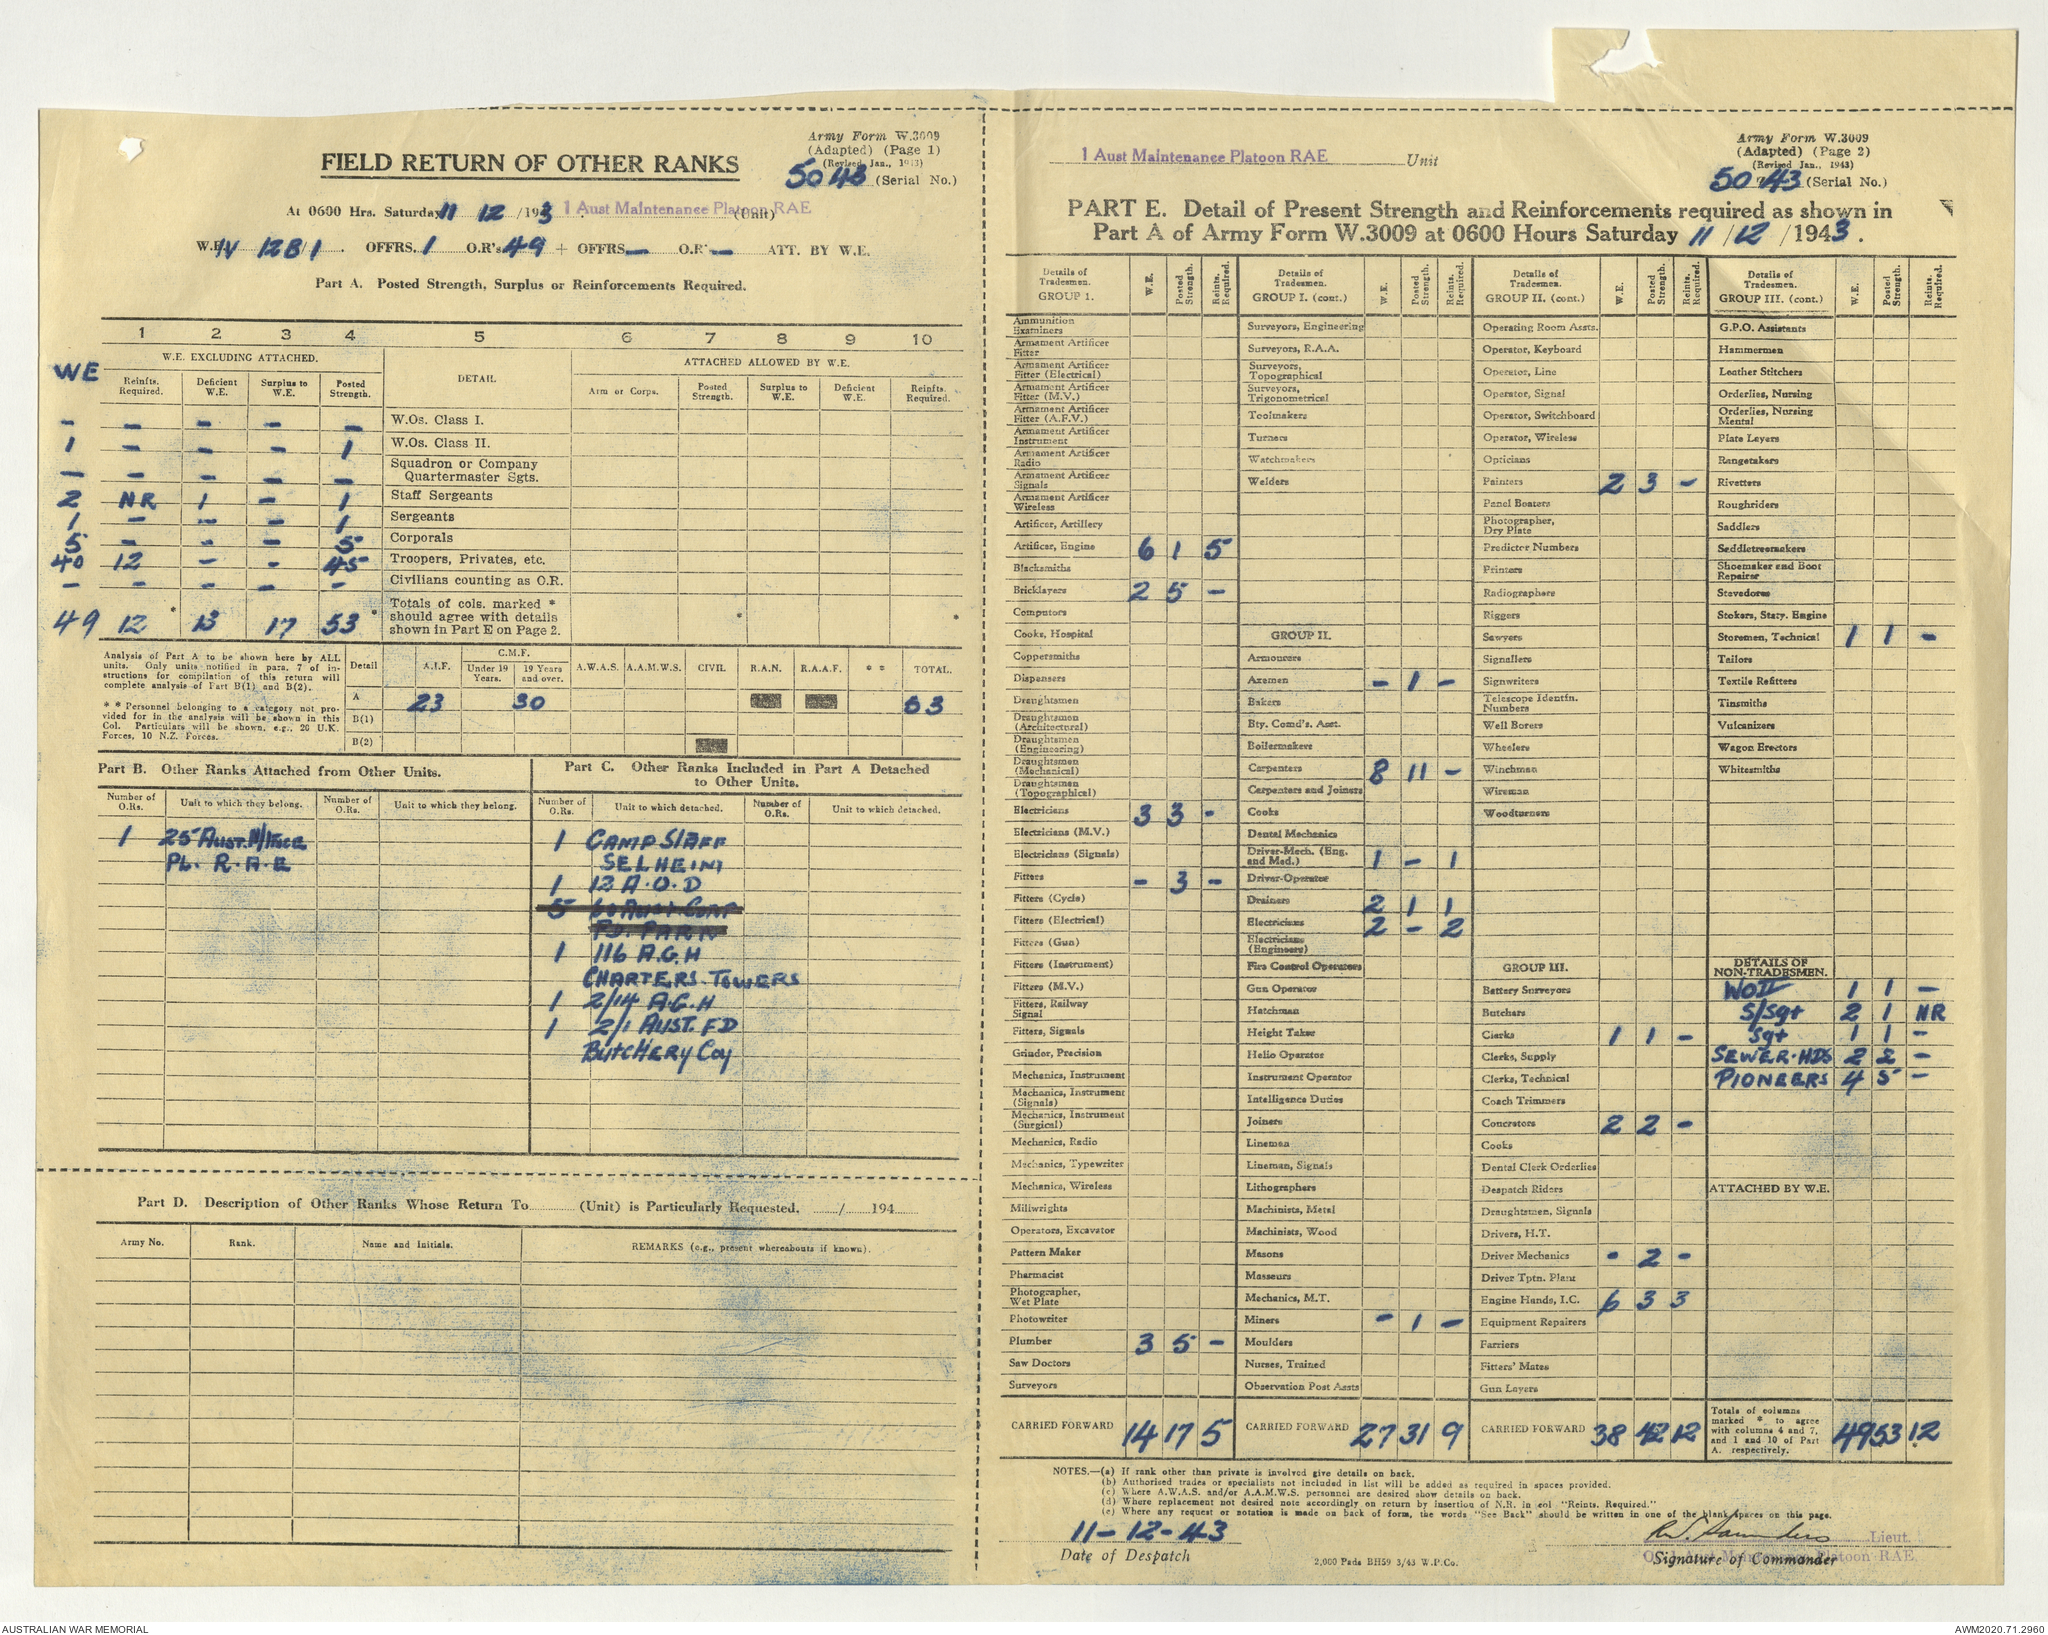 Army Form W.3009
(Adapted) (Page 1)
(Revised Jan., 1943)
5043 (Serial No.)
FIELD RETURN OF OTHER RANKS
At 0600 Hrs. Saturday 11 12 /1943 . 1 Aust Maintenance Platoon RAE (Unit)
W.E. IV 12B/1 . OFFRS. 1 O.R's 49 + OFFRS — O.R' — ATT. BY W.E.
Part A. Posted Strength, Surplus or Reinforcements Required.
1 2 3 4 5 6 7 8 9 10
W.E. EXCLUDING ATTACHED. DETAIL. ATTACHED ALLOWED BY W.E.
WE Reinfts. Required. Deficient W.E. Surplus to W.E. Posted Strength. Arm or Corps. Posted Strength. Surplus to W.E. Deficient W.E. Reinfts. Required.
– – – – – W.Os. Class I.
1 – – – 1 W.Os. Class II.
– – – – – Squadron or Company Quartermaster Sgts.
2 NR 1 – 1 Staff Sergeants
1 – – – 1 Sergeants
5 – – – 5 Corporals
40 12 – – 45 Troopers, Privates, etc.
– – – – – Civilians counting as O.R.
49 12 * 13 17 53 * Totals of cols. marked * should agree with details shown in Part E on Page 2. * *
Analysis of Part A to be shown here by ALL units. Only units notified in para. 7 of instructions for compilation of this return will complete analysis of Part B(1) and B(2).
* * Personnel belonging to a category not provided for in the analysis will be shown in this Col. Particulars will be shown, e.g., 20 U.K. Forces, 10 N.Z. Forces.
Detail A.I.F. C.M.F. Under 19 Years. 19 Years and over. A.W.A.S. A.A.M.W.S. CIVIL R.A.N. R.A.A.F. * * TOTAL.
A 23 30 53
B(1)
B(2)
Part B. Other Ranks Attached from Other Units.
Number of O.Rs. Unit to which they belong. Number of O.Rs. Unit to which they belong.
1 25 Aust. M/tnce
PL. R.A.E
Part C. Other Ranks Included in Part A Detached to Other Units.
Number of O.Rs. Unit to which detached. Number of O.Rs. Unit to which detached.
1 CAMP STAFF
SELHEIM
1 12 A.O.D
5
FD. PARK
1 116 A.G.H
CHARTERS. TOWERS
1 2/14 A.G.H
1 2/1 AUST. FD
BUTCHERY Coy
Part D. Description of Other Ranks Whose Return To ........ (Unit) is Particularly Requested. ...../ 194
Army No. Rank. Name and Initials. REMARKS (e.g., present whereabouts if known).
1 Aust Maintenance Platoon RAE Unit
Army Form W.3009
(Adapted) (Page 2)
(Revised Jan., 1943)
5043 (Serial No.)
PART E. Detail of Present Strength and Reinforcements required as shown in
Part A of Army Form W.3009 at 0600 Hours Saturday 11 / 12 / 1943 .
Details of Tradesmen. GROUP 1. W.E. Posted Strength. Reints. Required.
Ammunition Examiners
Armament Artificer Fitter
Armament Artificer Fitter (Electrical)
Armament Artificer Fitter (M.V.)
Armament Artificer Fitter (A.F.V.)
Armament Artificer Instrument
Armament Artificer Radio
Armament Artificer Signals
Armament Artificer Wireless
Artificer, Artillery
Artificer, Engine 6 1 5
Blacksmiths
Bricklayers 2 5 –
Computors
Cooks, Hospital
Coppersmiths
Dispensers
Draughtsmen
Draughtsmen (Architectural)
Draughtsmen (Engineering)
Draughtsmen (Mechanical)
Draughtsmen (Topographical)
Electricians 3 3 –
Electricians (M.V.)
Electricians (Signals)
Fitters – 3 –
Fitters (Cycle)
Fitters (Electrical)
Fitters (Gun)
Fitters (Instrument)
Fitters (M.V.)
Fitters, Railway Signal
Fitters, Signals
Grinder, Precision
Mechanics, Instrument
Mechanics, Instrument (Signals)
Mechanics, Instrument (Surgical)
Mechanics, Radio
Mechanics, Typewriter
Mechanics, Wireless
Millwrights
Operators, Excavator
Pattern Maker
Pharmacist
Photographer, Wet Plate
Photowriter
Plumber 3 5 –
Saw Doctors
Surveyors
CARRIED FORWARD 14 17 5
Details of Tradesmen. GROUP I. (cont.) W.E. Posted Strength. Reints. Required.
Surveyors, Engineering
Surveyors, R.A.A.
Surveyors, Topographical
Surveyors, Trigonometrical
Toolmakers
Turners
Watchmakers
Welders
GROUP II.
Armourers
Axemen – 1 –
Bakers
Bty. Comd's. Asst.
Boilermakers
Carpenters 8 11 –
Carpenters and Joiners
Cooks
Dental Mechanics
Driver-Mech. (Eng. and Med.) 1 – 1
Driver-Operator
Drainers 2 1 1
Electricians 2 – 2
Electricians (Engineers)
Fire Control Operators
Gun Operator
Hatchman
Height Taker
Helio Operator
Instrument Operator
Intelligence Duties
Joiners
Lineman
Lineman, Signals
Lithographers
Machinists, Metal
Machinists, Wood
Masons
Masseurs
Mechanics, M.T.
Miners – 1 –
Moulders
Nurses, Trained
Observation Post Assts
CARRIED FORWARD 27 31 9
Details of Tradesmen. GROUP II. (cont.) W.E. Posted Strength. Reints. Required.
Operating Room Assts.
Operator, Keyboard
Operator, Line
Operator, Signal
Operator, Switchboard
Operator, Wireless
Opticians
Painters 2 3 –
Panel Beaters
Photographer, Dry Plate
Predictor Numbers
Printers
Radiographers
Riggers
Sawyers
Signallers
Signwriters
Telescope Identfn. Numbers
Well Borers
Wheelers
Winchman
Wireman
Woodturners
GROUP III.
Battery Surveyors
Butchers
Clerks 1 1 –
Clerks, Supply
Clerks, Technical
Coach Trimmers
Concretors 2 2 –
Cooks
Dental Clerk Orderlies
Despatch Riders
Draughtsmen, Signals
Drivers, H.T.
Driver Mechanics – 2 –
Driver Tptn. Plant
Engine Hands, I.C. 6 3 3
Equipment Repairers
Farriers
Fitters' Mates
Gun Layers
CARRIED FORWARD 38 42 12
Details of Tradesmen. GROUP III. (cont.) W.E. Posted Strength. Reints. Required.
G.P.O. Assistants
Hammermen
Leather Stitchers
Orderlies, Nursing
Orderlies, Nursing Mental
Plate Layers
Rangetakers
Rivetters
Roughriders
Saddlers
Saddletreemakers
Shoemaker and Boot Repairer
Stevedores
Stokers, Staty. Engine
Storemen, Technical 1 1 –
Tailors
Textile Refitters
Tinsmiths
Vulcanizers
Wagon Erectors
Whitesmiths
DETAILS OF NON-TRADESMEN.
WOII 1 1 –
S/Sgt 2 1 NR
Sgt 1 1 –
SEWER. HDS 2 2 –
PIONEERS 4 5 –
ATTACHED BY W.E.
Totals of columns marked * to agree with columns 4 and 7, and 1 and 10 of Part A. respectively. 49 53 12
NOTES.—(a) If rank other than private is involved give details on back.
(b) Authorised trades or specialists not included in list will be added as required in spaces provided.
(c) Where A.W.A.S. and/or A.A.M.W.S. personnel are desired show details on back.
(d) Where replacement not desired note accordingly on return by insertion of N.R. in col "Reints. Required."
(e) Where any request or notation is made on back of form, the words "See Back" should be written in one of the blank spaces on this page.
11–12–43
Date of Despatch
2,000 Pads BH59 3/43 W.P.Co.
Saunders Lieut.
O.C. 1 Aust Maintenance Platoon RAE.
Signature of Commander
AUSTRALIAN WAR MEMORIAL
AWM2020.71.2960